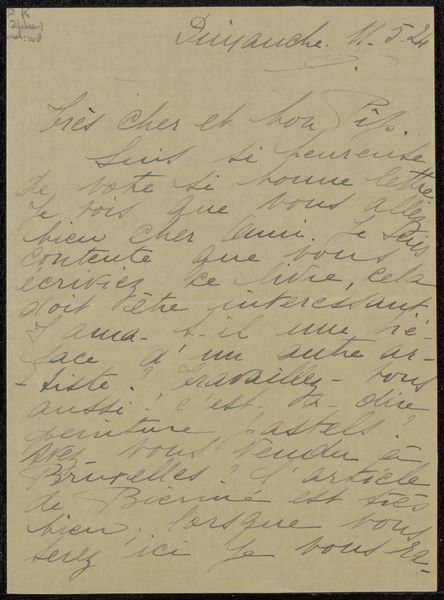 Dimanche. 11-5-24
Très cher et bon Pip.
Suis si heureuse
de votre si bonne lettre.
Je vois que vous allez
bien cher Ami. Je suis
contente que vous
écriviez ce livre, cela
doit être intéressant
Y ama-s-il une pré-
face d'un autre ar-
-tiste? Travaillez-vous
aussi? c'est-à-dire
peinture Pastels?
Avez vous vendu à
Bruxelles? L'article
de est très
bien, lorsque vous
serez ici je vous